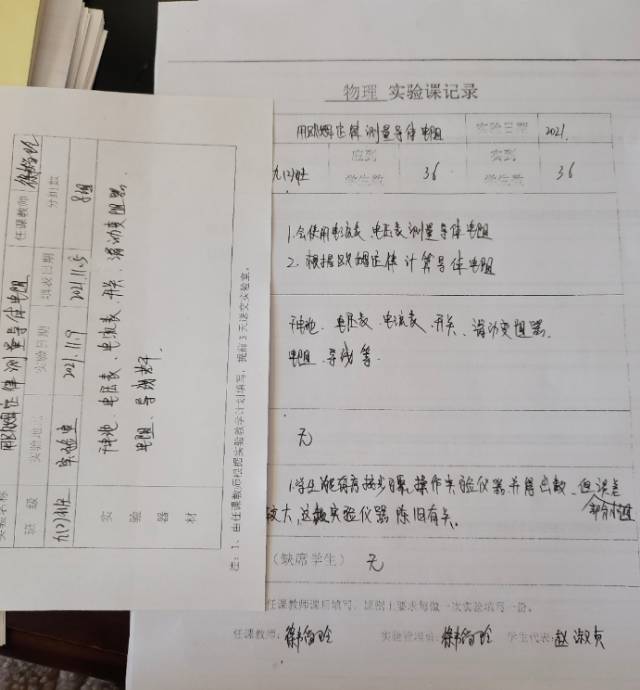 物理 实验课记录
用欧姆定律测量导体电阻 实验日期 2021.
应到 实到
九(2)班 学生数 36 学生数 36
1.会使用电流表 电压表测量导体电阻
2.根据欧姆定律计算导体电阻
干电池、电压表、电流表、开关、滑动变阻器、
电阻、导线等.
无
1.学生能存有按步骤,操作实验仪器并得出数,但误差
部分小组
较大,这和实验仪器陈旧有关.
(缺席学生) 无
任课教师课后填写,原则上要求每做一次实验填写一份。
任课教师: 实验管理员: 学生代表:赵淑贞
实验名称 用欧姆定律测量导体电阻 任课教师
班 级 实验地点 实验日期 填表日期 分组数
九(2)班 实验室 2021.11.9 2021.11.5 8组
实 验 器 材
干电池、电压表、电流表、开关、滑动变阻器
电阻、导线若干
注:1、由任课教师根据实验教学计划填写,提前3天送交实验室。